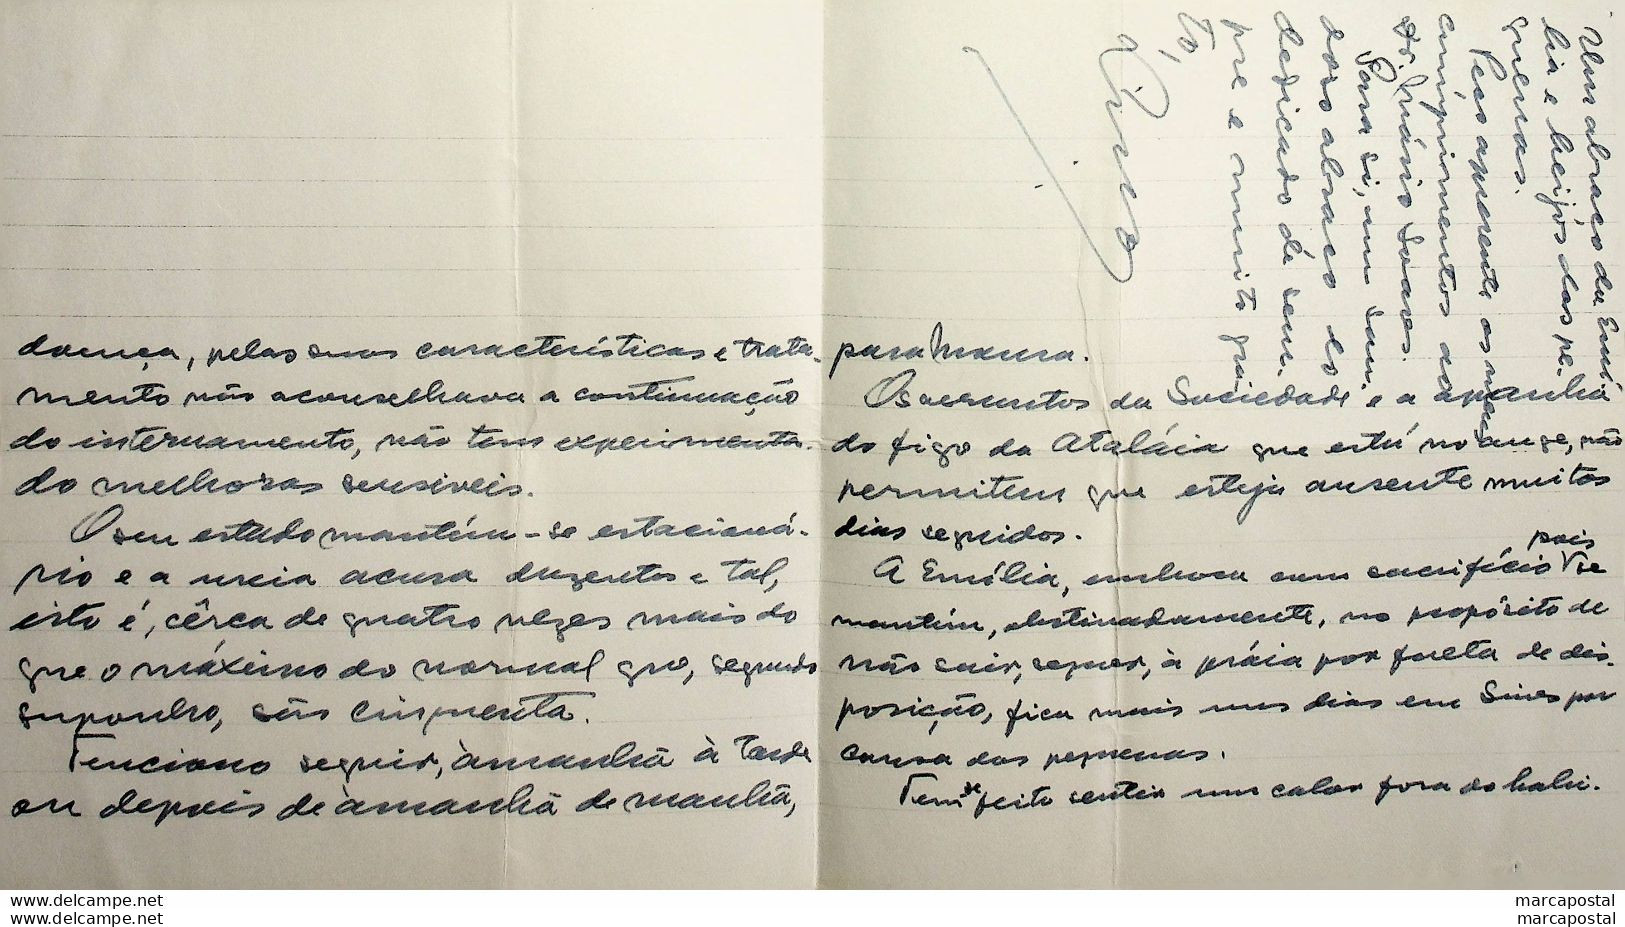 doença, pelas suas características e trata-
mento não aconselhava a continuação
do internamento, não tem experimenta-
do melhoras sensíveis.
O seu estado mantém-se estacioná-
rio e a ureia acusa duzentos e tal,
isto é, cêrca de quatro vezes mais do
que o máximo do normal que, segundo
suponho, são cinquenta.
Tenciono seguir, àmanhã à tarde
ou depois de àmanhã de manhã,
para Moura.
Os assuntos da Sociedade e a apanha
do figo da Ataláia que está no auge, não
permitem que esteja ausente muitos
dias seguidos.
A Emília, embora com sacrifício pois se
mantém, obstinadamente, no propósito de
não sair, sequer, à práia por falta de dis-
posição, fica mais uns dias em Sines por
causa das pequenas.
Tem-se feito sentir um calor fora do habi-
Um abraço da Emí
lia e beijos das pe-
quenas.
Peço apresente os meus
cumprimentos ao
Dr. Mário Soares.
Para si, um sau-
doso abraço do
dedicado de sem-
pre e muito gra-
to,
marcapostal
delcampe.net
marcapostal
delcampe.net